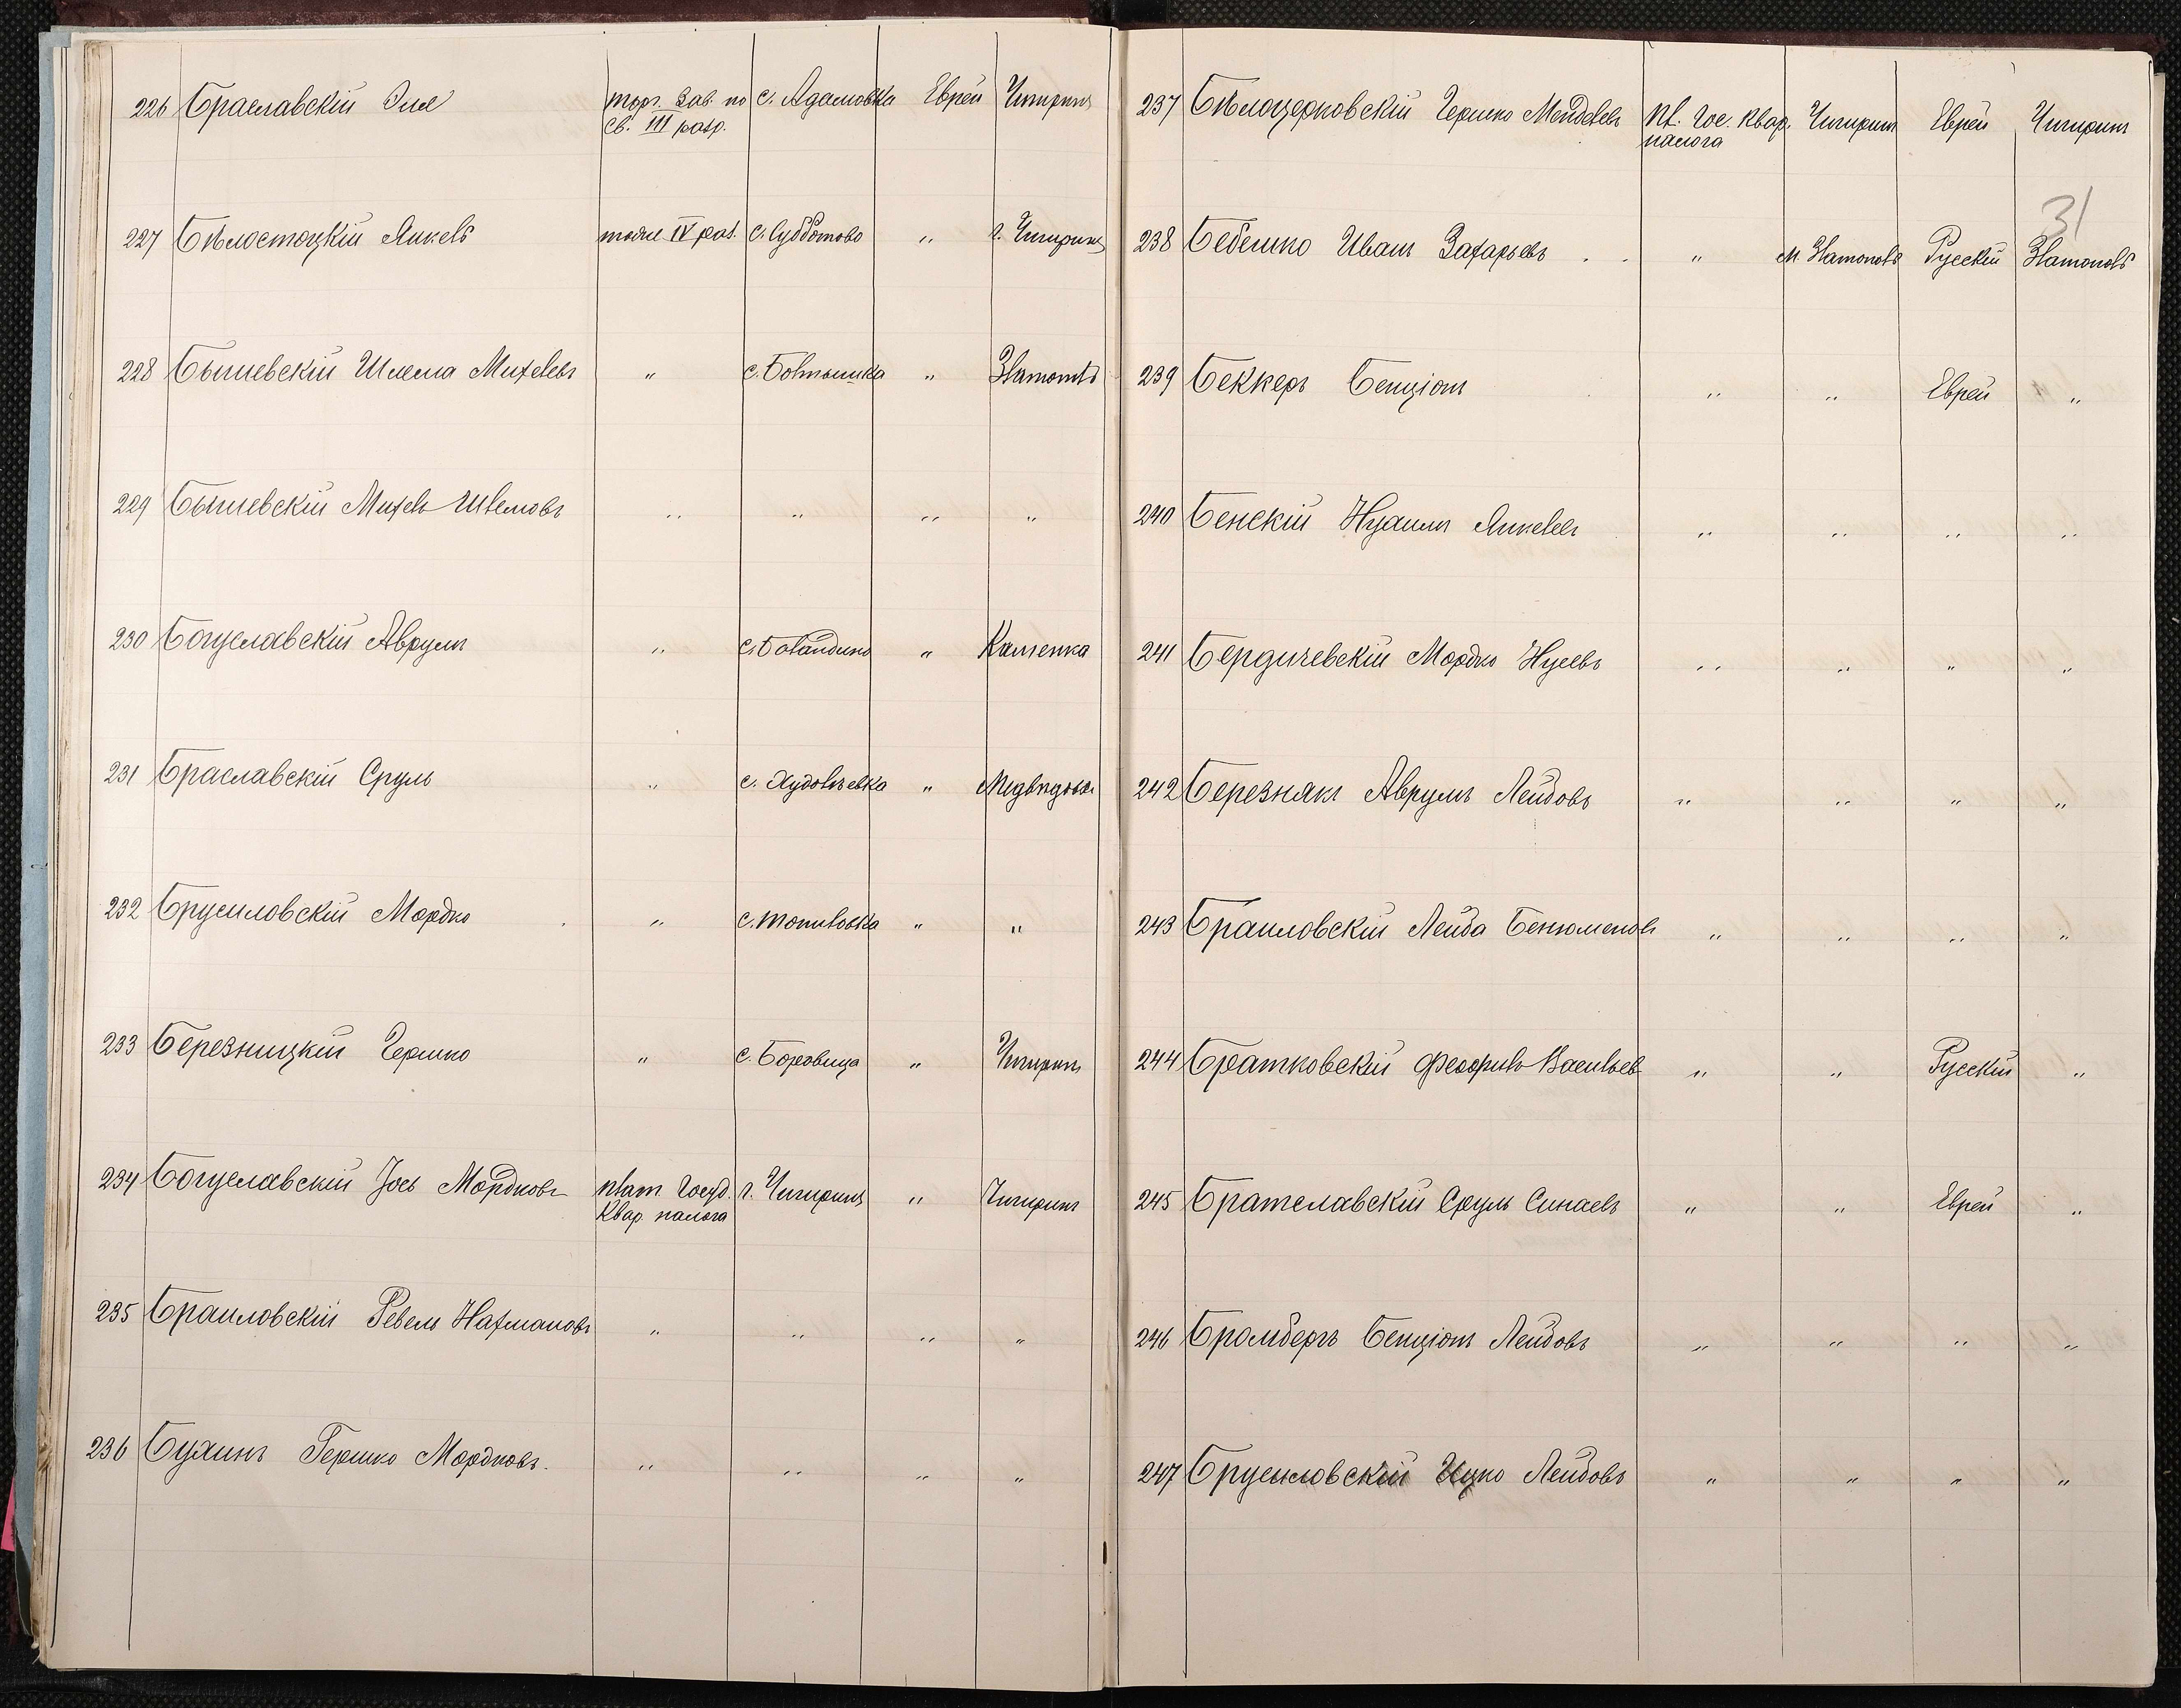 226 Браславскій Эля торг. зав. по с. Адамовка Еврей Чигиринъ
св. III разр.
227 Бѣлостоцкій Янкель тоже IV раз. с. Субботово „ г. Чигиринъ
228 Бышевскій Шлема Михелевъ „ с. Болтышка „ Златополь
229 Бышевскій Михель Шлемовъ „ „ „ „
230 Богуславскій Аврумъ „ с. Баландино „ Каменка
231 Браславскій Сруль „ с. Худолѣевка „ Медвѣдовка
232 Брусиловскій Мордко „ с. Топиловка „ „
233 Березницкій Гершко „ с. Боровица „ Чигиринъ
234 Богуславскій Іось Мордковъ плат. Госуд. г. Чигиринъ „ Чигиринъ
Квар. налога
235 Браиловскій Ревель Нахмановъ „ „ „ „
236 Бухинъ Гершко Мордковъ. „ „ „ „
237 Бѣлоцерковскій Гершко Менделевъ пл. Гос. Квар. Чигиринъ Еврей Чигиринъ
налога
31
238 Бебешко Иванъ Захарьевъ „ м. Златополь Русскій Златополь
239 Беккеръ Бенціонъ „ „ Еврей „
240 Бенскій Нухимъ Янкелевъ „ „ „ „
241 Бердичевскій Мордко Нусевъ „ „ „ „
242 Березнякъ Аврумъ Лейбовъ „ „ „ „
243 Браиловскій Лейба Бенюменовъ „ „ „ „
244 Братковскій Феофилъ Васильев „ „ Русскій „
245 Братславскій Сруль Синаевъ „ „ Еврей „
246 Бромбергъ Бенціонъ Лейбовъ „ „ „ „
247 Брусиловскій Ицко Лейбовъ „ „ „ „